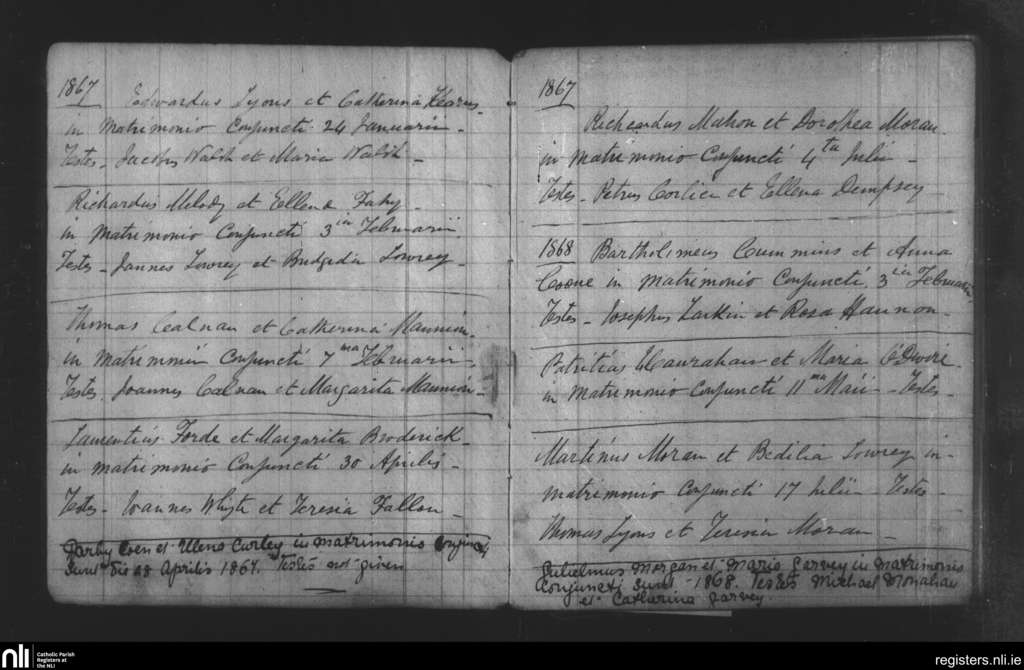 1867
Edwardus Lyons et Catherina
in Matrimonio Conjuncti 24 Januarii -
Testes - Jacobus Walsh et Maria Walsh -
Richardus Melody et Ellena Fahy -
in Matrimonio Conjuncti 3 in Februarii
Testes - Jannes Lowrey et Bridgida Lowrey -
Thomas Calnan et Catherina Mannion -
in Matrimonii Conjuncti 7 ma Februarii -
Testes Joannes Calnan et Margarita Mannion -
Laurentius Forde et Margarita Broderick -
in matrimonio Conjuncti 30 Aprilis -
Testes - Joannes Whyte et Teresia Fallon -
Darby Coen et Ellena Curley in matrimonio conjuncti
sunt die 28 Aprilis 1867. Testes not given
1867
Richardus Mahon et Dorothea Moran -
in Matrimonio Conjuncti 4 ta Julii -
Testes - Petrus Corlier et Ellena Dempsey
1868 Bartholimeus Cummins et Anna
Coone in Matrimonio Conjuncti 3 in Februarii
Testes - Josephus Larkin et Rosa Hannon -
Patritius et Maria O'Dwire
in Matrimonio Conjuncti 11 ma Maii - Testes -
Martinus Moran et Bidilia Lowrey in -
matrimonio Conjuncti 17 Julii - Testes -
Thomas Lyons et Teresia Moran -
Gulielmus Morgan et Maria Garvey in matrimonio
conjuncti sunt - 1868. Testes Michael Monahan
et Catharina Garvey.
nli Catholic Parish
Registers at
the NLI
registers.nli.ie